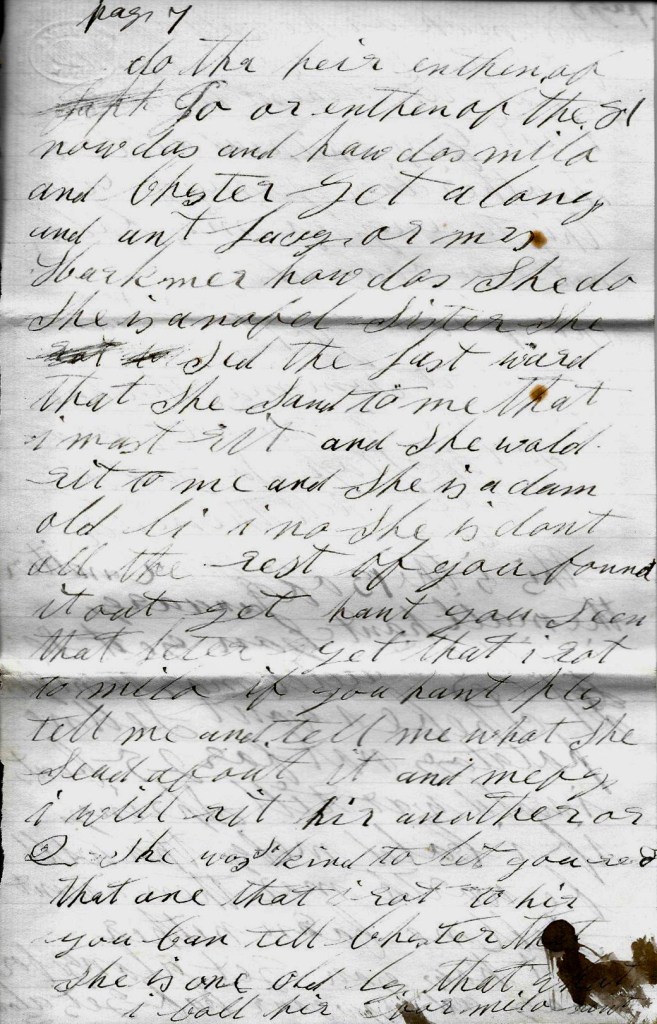 page 7
do tha heir enthen of
Jo or enthen of the
now das and how das mila
and Chester get along
and ant Lucy or mrs
how das She do
She is a Sister She
Sed the last word
that She Sand to me that
i mast rit and She wold
rit to me and She is a dam
old li i no She is dont
all the rest of you found
it out get hant you Seen
that leter yet that i rot
to mila if you hant pls
tell me and tell me what She
Sead about it and mepy
i will rit hir another or
2 She was kind to let you red
that one that i rot to hir
you Can tell Chester that
She is one old that
i Call hir mila